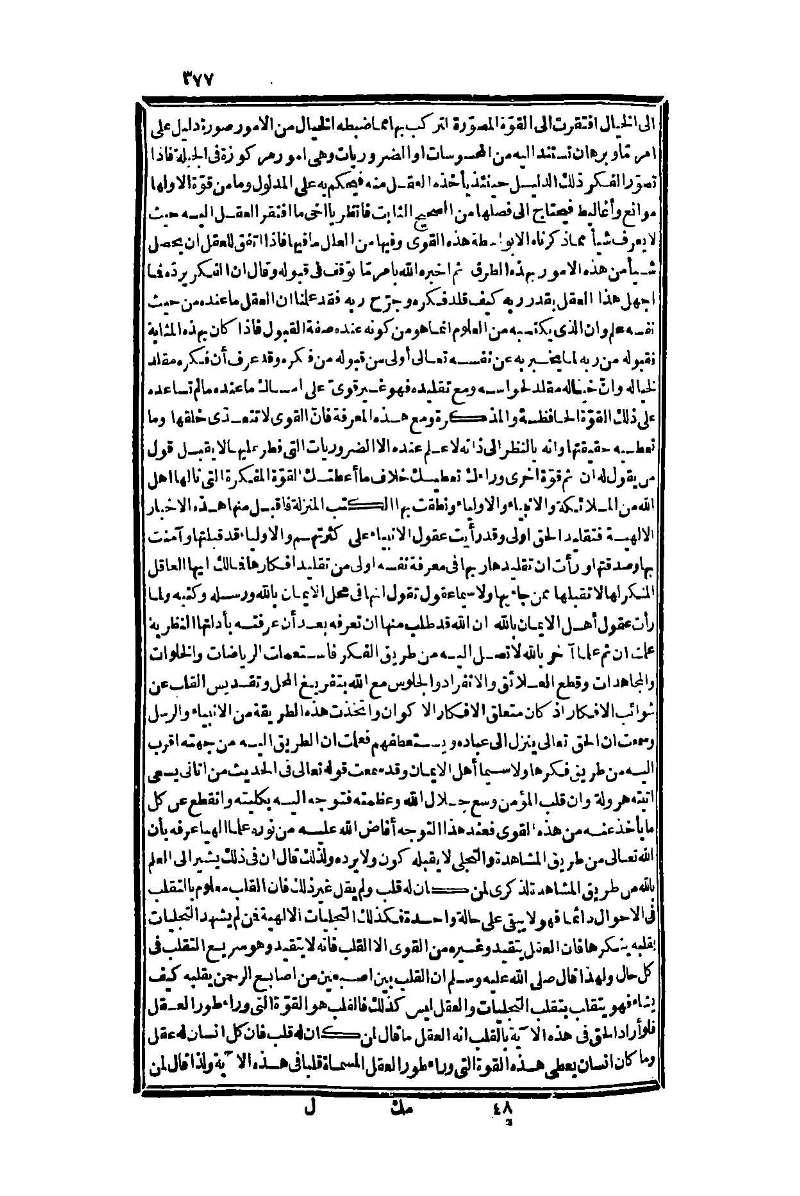 ٣٧٧
الى الخيال افتقرت الى القوة المصورة لتركب بها مما ضبطه الخيال من الامور صورة دليل على
امر ما وبرهان تستند اليه من المحسوسات او الضروريات وهى امور مركوزة فى الجبلة فاذا
تصور الفكر ذلك الدليل حينئذ يأخذه العقل منه فيحكم به على المدلول وما من قوة الا ولها
موانع وأغاليط فيحتاج الى فصلها من الصحيح الثابت فانظر يا اخى ما افقر العقل اليه حيث
لا يعرف شيأ مما ذكرناه الا بواسطة هذه القوى وفيها من العلل ما فيها فاذا اتفق للعقل ان يحصل
شيأ من هذه الامور بهذه الطرق ثم اخبره الله بامر ما توقف فى قبوله وقال ان الفكر يرده فما
اجهل هذا العقل بقدر ربه كيف قلد فكره وجرّح ربه فقد علمنا ان العقل ما عنده من حيث
نفسه علم وان الذى يكتسبه من العلوم انما هو من كونه عنده صفة القبول فاذا كان بهذه المثابة
فقبوله من ربه لما يخبر به عن نفسه تعالى أولى من قبوله من فكره وقد عرف أن فكره مقلد
لخياله وانّ خياله مقلد لحواسه ومع تقليده فهو غير قوىّ على امساك ما عنده مالم تساعده
على ذلك القوّة الحافظة والمذكرة ومع هذه المعرفة فانّ القوى لا تتعدّى خلقها وما
تعطيه حقيقتها وانه بالنظر الى ذاته لا علم عنده الا الضروريات التى فطر عليها لا يقبل قول
من يقول له ان ثم قوة اخرى وراءك تعطيك خلاف ما أعطتك القوّة المفكرة التى نالها اهل
الله من الملائكة والانبياء والاولياء ونطقت بها الكتب المنزلة فاقبل منها هذه الاخبار
الالهية فتقليد الحق اولى وقد رأيت عقول الانبياء على كثرتهم والاولياء قد قبلتها وآمنت
بها وصدقتها ورأت ان تقليدها ربها فى معرفة نفسه اولى من تقليد افكارها فمالك ايها العاقل
المنكر لها لا تقبلها ممن جاء بها ولا سيما عقول تقول انها فى محل الايمان بالله ورسله وكتبه ولما
رأت عقول أهل الايمان بالله ان الله قد طلب منها ان تعرفه بعد أن عرفته بأدلتها النظرية
علمت ان ثم علما آخر بالله لا تصل اليه من طريق الفكر فاستعملت الرياضات والخلوات
والمجاهدات وقطع العلائق والانفراد والجلوس مع الله بتفريغ المحل وتقديس القلب عن
شوائب الافكار اذ كان متعلق الافكار الاكوان واتخذت هذه الطريقة من الانبياء والرسل
وسمعت ان الحق تعالى ينزل الى عباده ويستعطفهم فعلمت ان الطريق اليه من جهته اقرب
اليه من طريق فكرها ولا سيما أهل الايمان وقد سمعت قوله تعالى فى الحديث من اتانى يسعى
اتيته هرولة وان قلب المؤمن وسع جلال الله وعظمته فتوجه اليه بكليته وانقطع عن كل
ما يأخذ عنه من هذه القوى فعند هذا التوجه أفاض الله عليه من نوره علما الهيا عرفه بأن
الله تعالى من طريق المشاهدة والتجلى لا يقبله كون ولا يرده ولذلك قال ان فى ذلك يشير الى العلم
بالله من طريق المشاهدة لذكرى لمن كان له قلب ولم يقل غير ذلك فان القلب معلوم بالتقلب
فى الاحوال دائما فهو لا يبقى على حالة واحدة فكذلك التجليات الالهية فمن لم يشهد التجليات
بقلبه ينكرها فان العقل يتقيد وغيره من القوى الا القلب فانه لا يتقيد وهو سريع التقلب فى
كل حال ولهذا قال صلى الله عليه وسلم ان القلب بين اصبعين من اصابع الرحمن يقلبه كيف
يشاء فهو يتقلب بتقلب التجليات والعقل ليس كذلك فالقلب هو القوّة التى وراء طور العقل
فلو أراد الحق فى هذه الآية بالقلب انه العقل ما قال لمن كان له قلب فان كل انسان له عقل
وما كان انسان يعطى هذه القوة التى وراء طور العقل المسماة قلبا فى هذه الآية ولذا قال لمن
٤٨ مك ل